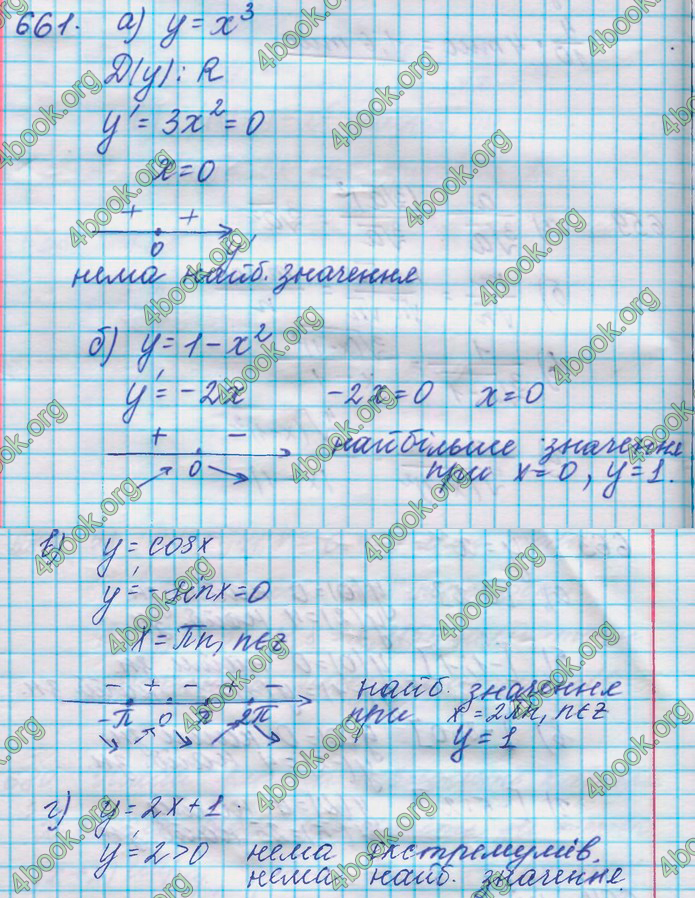 661. а) y = x³
D(y): R
y' = 3x² = 0
x = 0
+ +
0 y'
нема найб. значення
б) y = 1 - x²
y' = -2x -2x = 0 x = 0
+ -
0
найбільше значення
при x = 0, y = 1.
в) y = cosx
y' = -sinx = 0
x = πn, n∈z
- + - + -
-π 0 π 2π
найб. значення
при x = 2πn, n∈z
y = 1
г) y = 2x + 1.
y' = 2 > 0 нема екстремумів.
нема найб. значення
4book.org